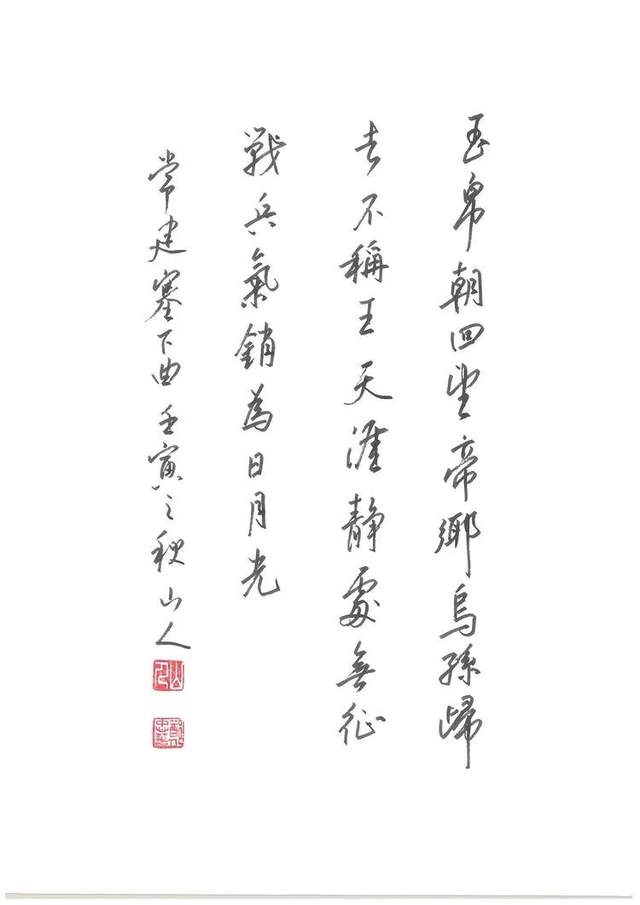 玉帛朝回望帝鄉烏孫歸
去不稱王天涯靜處無征
戰兵氣銷為日月光
常建塞下曲壬寅之秋山人